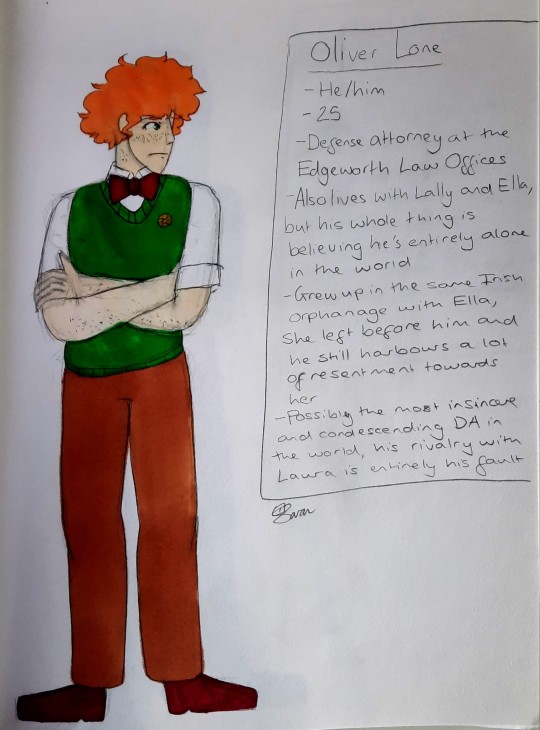 Oliver Lone
- He/him
- 25
- Defense attorney at the
Edgeworth Law Offices
- Also lives with Lally and Ella,
but his whole thing is
believing he's entirely alone
in the world
- Grew up in the same Irish
orphanage with Ella,
she left before him and
he still harbours a lot
of resentment towards
her
- Possibly the most insincere
and condescending DA in
the world, his rivalry with
Laura is entirely his fault